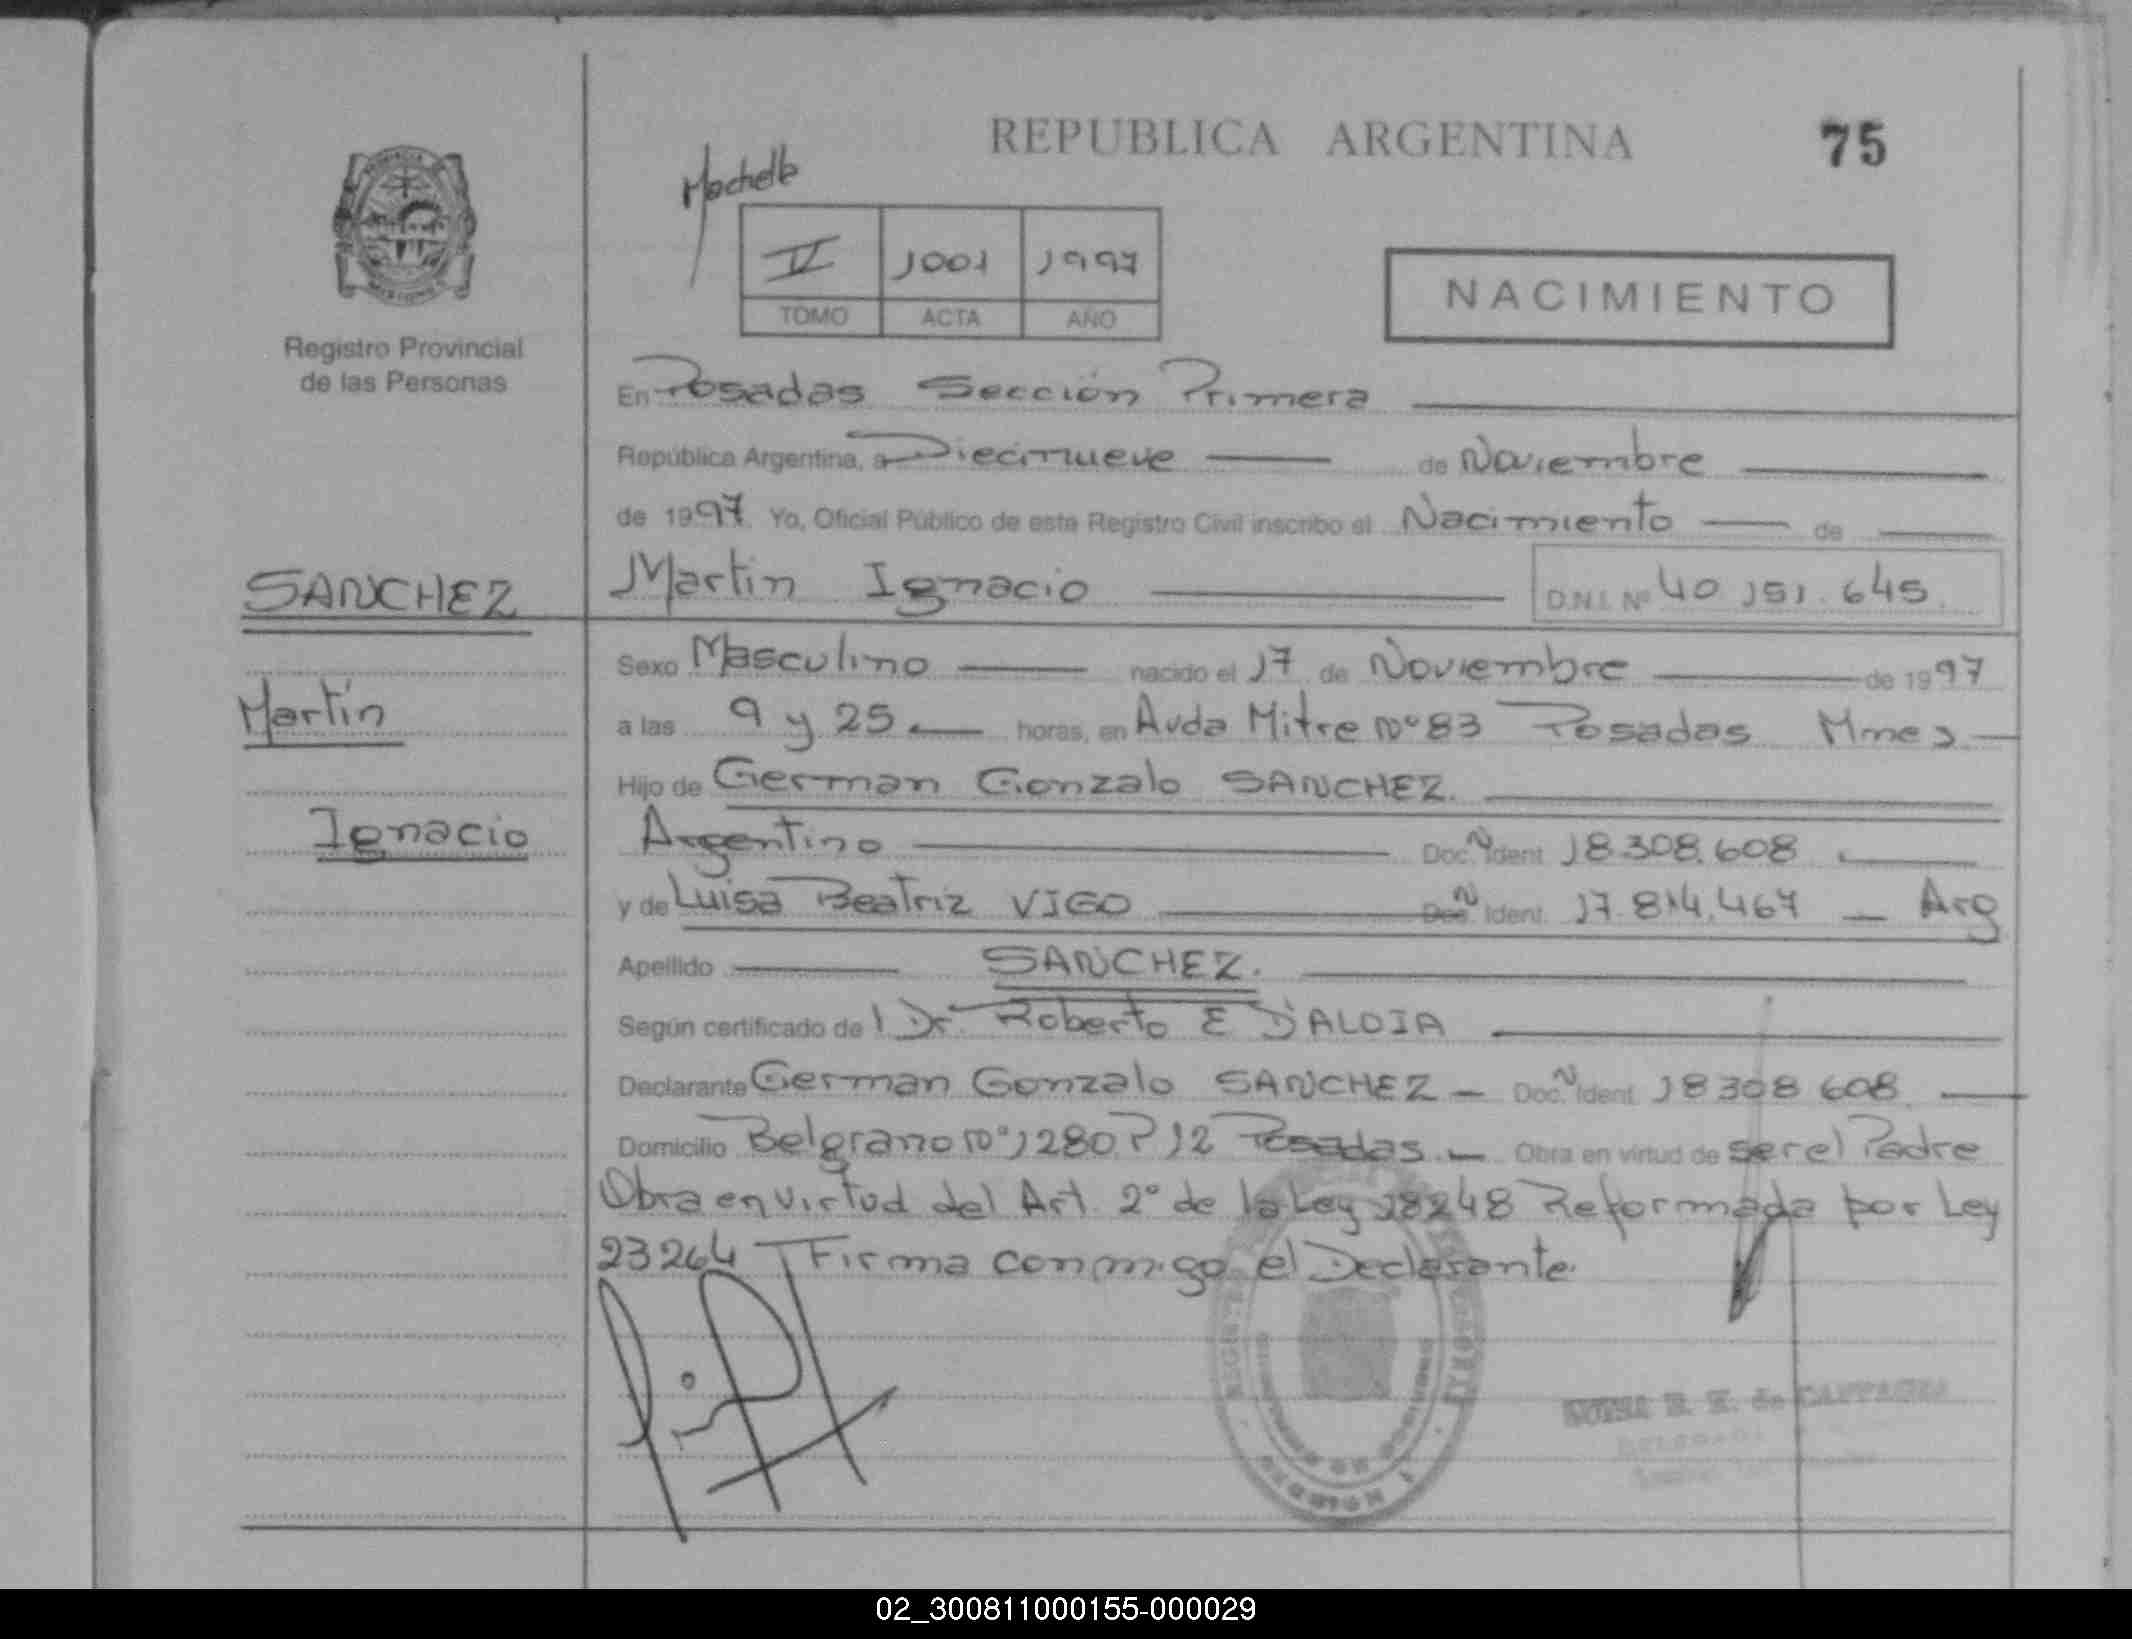 REPUBLICA ARGENTINA
75
V 1001 1997
TOMO ACTA AÑO
NACIMIENTO
Registro Provincial
de las Personas
En Posadas Sección Primera
República Argentina, a Diecinueve de Noviembre
de 1997 Yo, Oficial Público de este Registro Civil inscribo el Nacimiento de
SANCHEZ
Martin Ignacio D.N.I. Nº 40 151.645
Sexo Masculino nacido el 17 de Noviembre de 1997
Martín
a las 9 y 25 horas, en Avda Mitre Nº 83 Posadas Mnes
Hijo de German Gonzalo SANCHEZ.
Ignacio
Argentino Doc. N Ident 18.308.608
y de Luisa Beatriz VIGO Doc. N Ident. 17.814.467 Arg
Apellido SANCHEZ.
Según certificado de l Dr. Roberto E D'ALOIA
Declarante German Gonzalo SANCHEZ Doc. N Ident 18 308 608
Domicilio Belgrano Nº 1280 P 12 Posadas. Obra en virtud de ser el Padre
Obra en virtud del Art. 2º de la Ley 18248 Reformada por Ley
23264 Firma conmigo el Declarante.
02_300811000155-000029